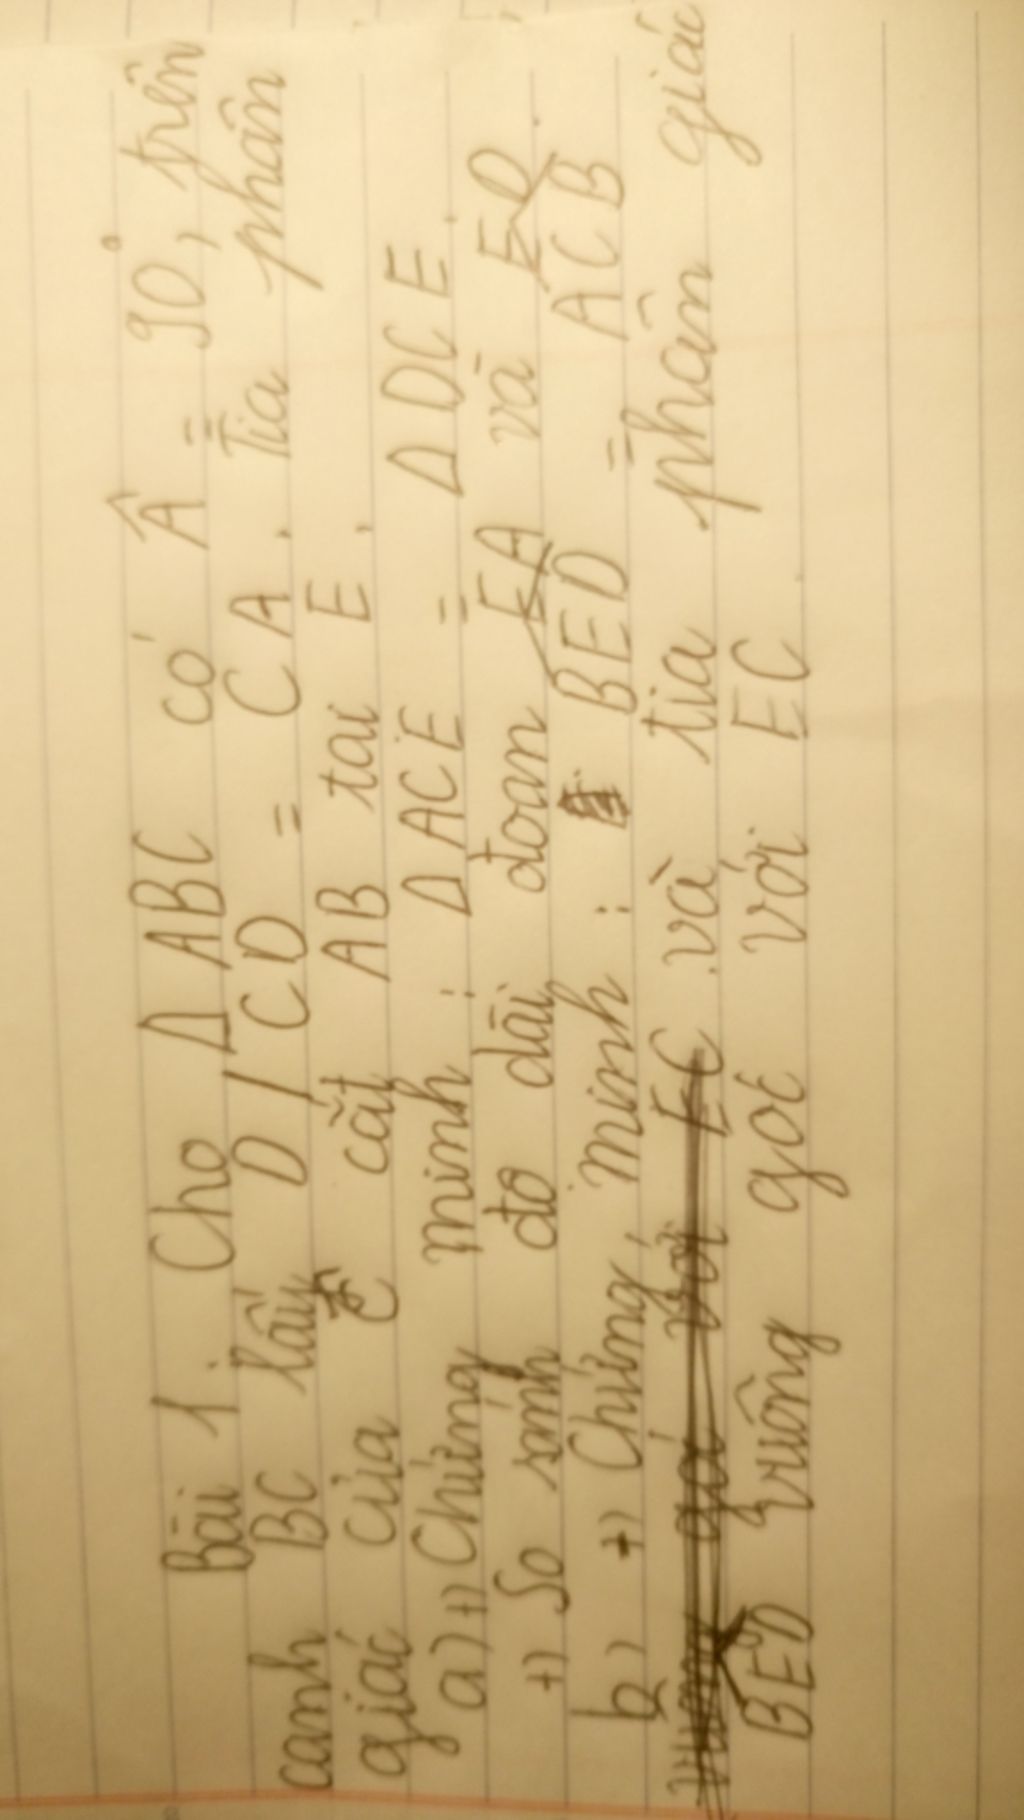 Bài 1. Cho Δ ABC có Â = 90°, trên
cạnh BC lấy D / CD = CA. Tia phân
giác của Ĉ cắt AB tại E.
a) +) Chứng minh : Δ ACE = Δ DCE.
+) So sánh độ dài đoạn EA và ED.
b) +) Chứng minh : BED = ACB
và tia phân giác
BED vuông góc với EC.